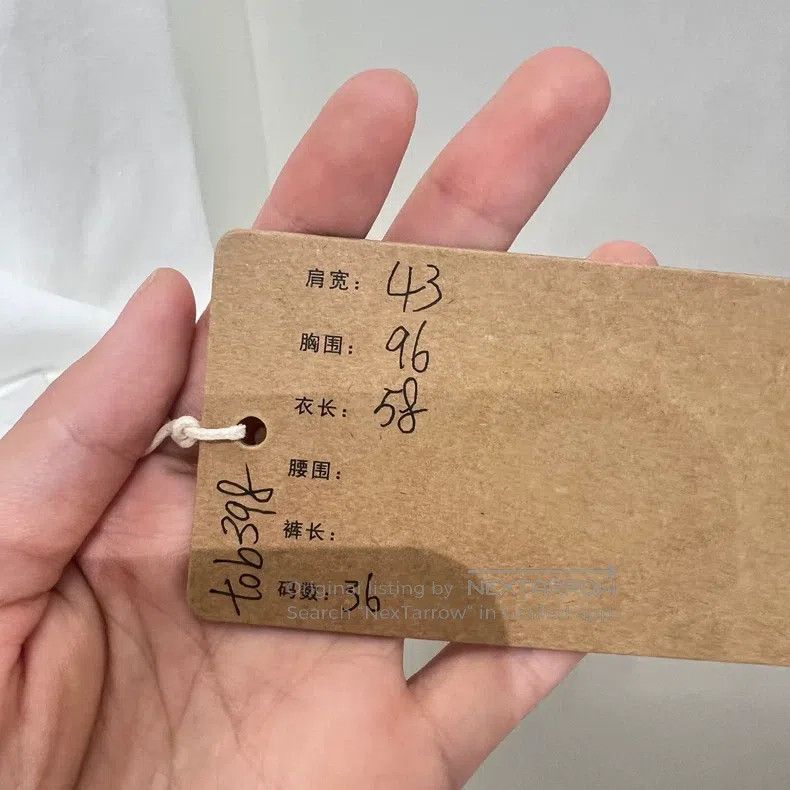 肩宽: 43
胸围: 96
衣长: 58
腰围:
裤长:
码数: 36
tob398
Original listing by NEXTARROW
Search "NexTarrow" in Carousell app